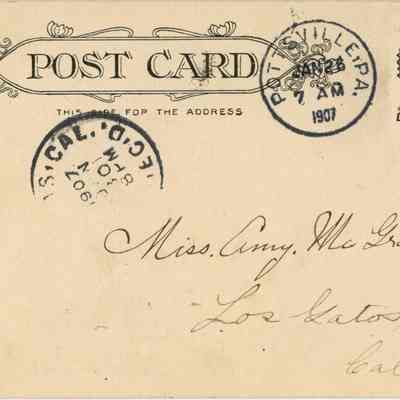 POST CARD
THIS SIDE FOR THE ADDRESS
POTTSVILLE, PA.
JAN 26
7 AM
1907
CAL. REC'D.
Miss. Amy. Mc Gra
Los Gatos,
Cal